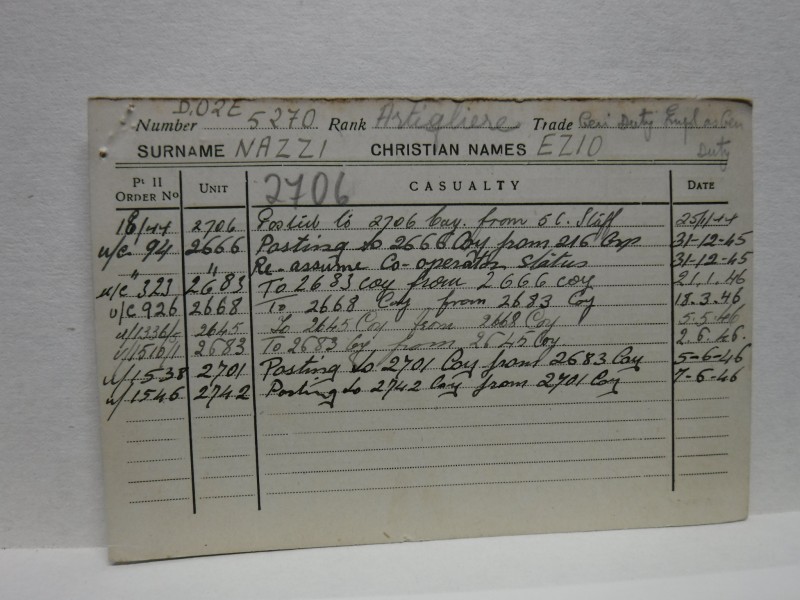 D.02E
Number 5270 Rank Artigliere Trade Gen Duty Empl as Gen Duty
SURNAME NAZZI CHRISTIAN NAMES EZIO
Pt II ORDER No UNIT 2706 CASUALTY DATE
18/44 2706 Posted to 2706 Coy. from S.C. Staff 25/1/44
u/c 94 2666 Posting to 2666 Coy from 216 Coy 31-12-45
" " Re-assume Co-operator status 31-12-45
u/c 323 2683 To 2683 coy from 2666 coy 21.1.46
u/c 926 2668 To 2668 Coy from 2683 Coy 18.3.46
u/1336/5 2645 To 2645 Coy from 2668 Coy 5.5.46
u/1516/1 2683 To 2683 Coy from 2645 Coy 2.6.46.
u/1538 2701 Posting to 2701 Coy from 2683 Coy 5-6-46
u/1546 2742 Posting to 2742 Coy from 2701 Coy 7-6-46